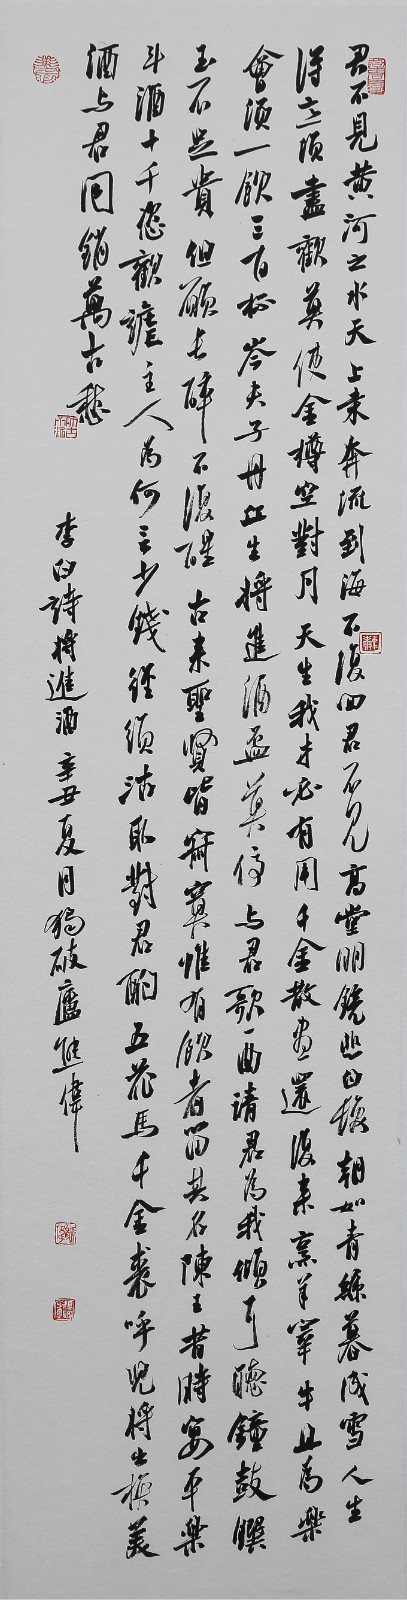 君不見黄河之水天上来奔流到海不復回君不見高堂明鏡悲白髮朝如青絲暮成雪人生
得意須盡歡莫使金樽空對月天生我才必有用千金散盡還復来烹羊宰牛且為樂
會須一飲三百杯岑夫子丹丘生將進酒盃莫停与君歌一曲請君為我傾耳聽鐘鼓饌
玉不足貴但願長醉不復醒古来聖賢皆寂寞惟有飲者留其名陳王昔時宴平樂
斗酒十千恣歡謔主人為何言少錢徑須沽取對君酌五花馬千金裘呼兒將出換美
酒与君同銷萬古愁
李白詩將進酒辛丑夏月獨破廬熊偉